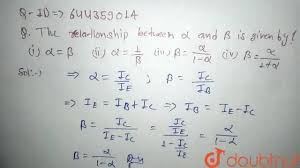 Q-ID⇒ 644359014
Q. The relationship between α and β is given by?
(i) α=β (ii) α=1/β (iii) β=α/(1-α) (iv) β=α/(1+α)
Sol:- ⇒ α = IC/IE ; β = IC/IB
⇒ IE = IB + IC ⇒ IB = IE - IC
β = IC/(IE - IC) = (IC/IE)/(1 - IC/IE) = α/(1-α)
β = α/(1-α)
doubtnut